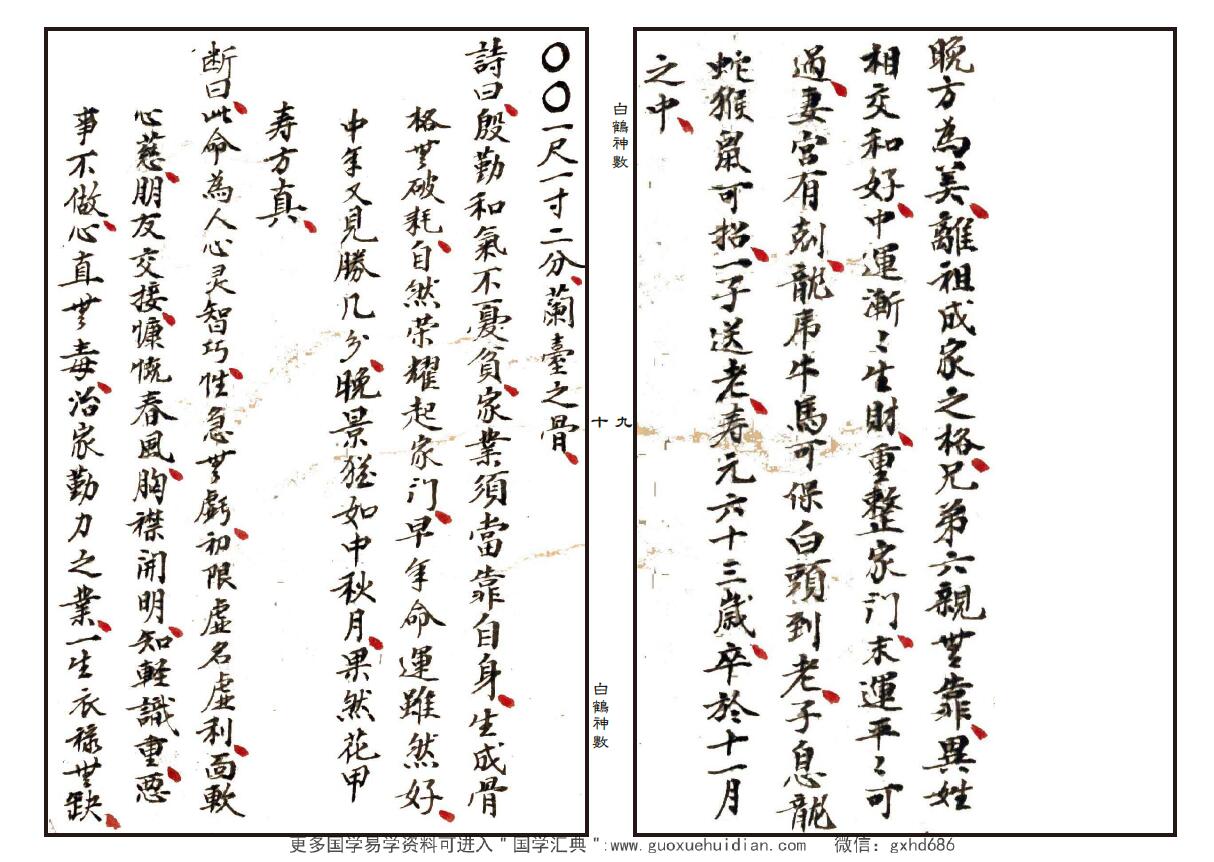 晚方為美離祖成家之格兄弟六親無靠異姓
相交和好中運漸〻生財重整家門末運平〻可
過妻宮有剋龍虎牛馬可保白頭到老子息龍
蛇猴鼠可招一子送老寿元六十三歲卒於十一月
之中
白鶴神數
十九
白鶴神數
〇〇一尺一寸二分蘭臺之骨
詩曰殷勤和氣不憂貧家業須當靠自身生成骨
格無破耗自然荣耀起家门早年命運雖然好
中年又見勝几分晚景猶如中秋月果然花甲
寿方真
断曰此命為人心灵智巧性急無虧初限虛名虛利面軟
心慈朋友交接慷慨春風胸襟開明知軽識重惡
事不做心直無毒治家勤力之業一生衣祿無缺
更多国学易学资料可进入＂国学汇典＂:www.guoxuehuidian.com 微信：gxhd686